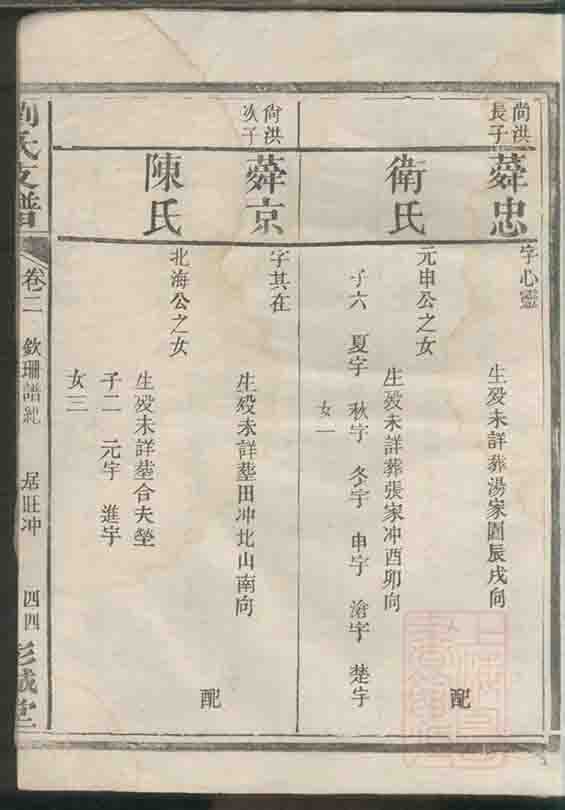 尚洪長子
蕣忠
字心靈
生殁未詳葬湯家園辰戌向
配
衛氏
元申公之女
生殁未詳葬張家冲酉卯向
子六 夏宇 秋宇 冬宇 申宇 滄宇 楚宇
女一
尙洪次子
蕣京
字其在
生殁未詳塟田冲北山南向
配
陳氏
北海公之女
生殁未詳塟合夫塋
子二 元宇 進宇
女三
劉氏支譜
卷二 欽珊譜紀 居旺冲 四四 彭城堂